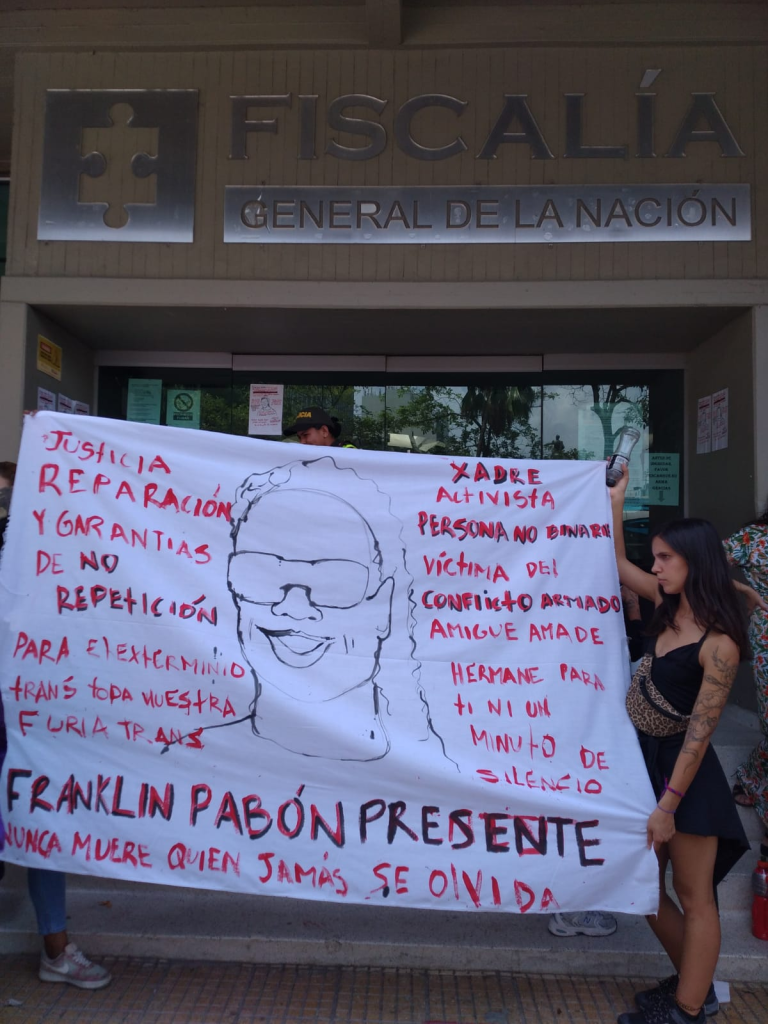 FISCALÍA
GENERAL DE LA NACIÓN
CIA
JUSTICIA
REPARACIÓN
Y GARANTIAS
DE NO
REPETICIÓN
PARA El EXTERMINIO
TRANS TODA NUESTRA
FURIA TRANS
XADRE
ACTIVISTA
PERSONA NO BINARIE
VÍCTIMA DEl
CONFLICTO ARMADO
AMIGUE AMADE
HERMANE PARA
TI NI UN
MINUTO DE
SILENCIO
FRANKLIN PABÓN PRESENTE
NUNCA MUERE QUIEN JAMÁS SE OlVIDA